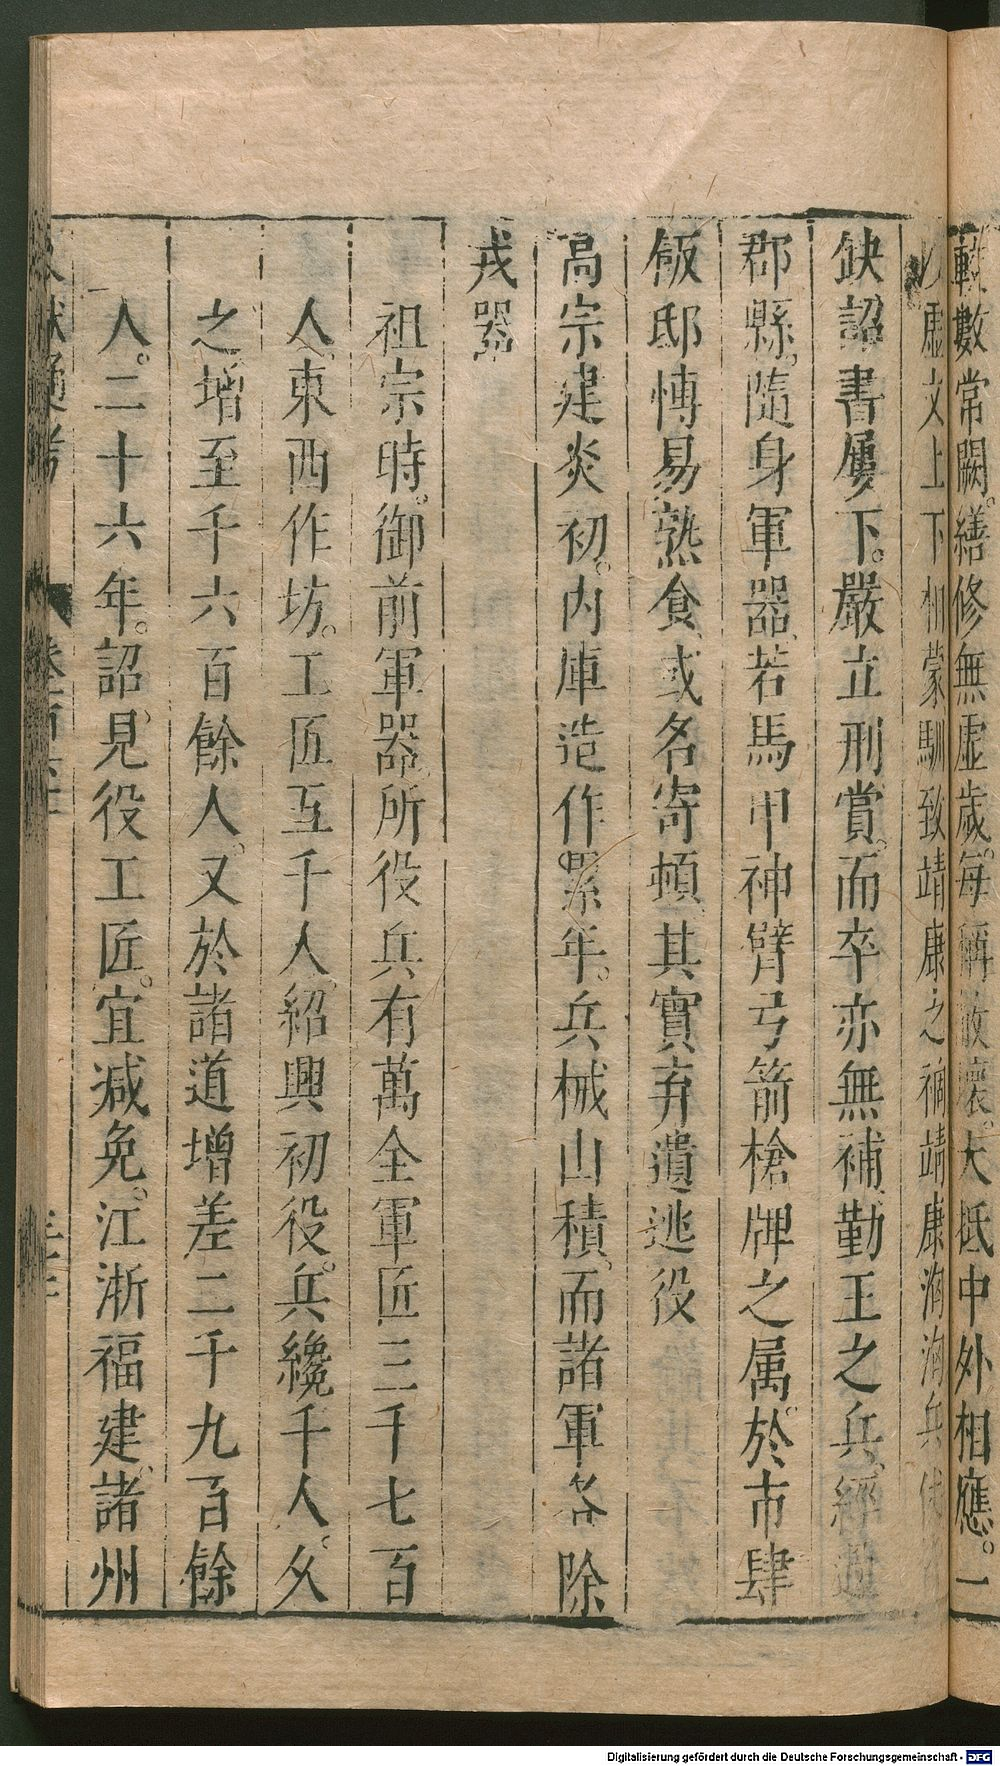 轄數常闕。繕修無虛歲。每稱敝壞。大抵中外相應。一
以虛文上下相蒙馴致靖康之禍靖康洶洶兵仗
缺詔書屢下。嚴立刑賞。而卒亦無補、勤王之兵、經過
郡縣。隨身軍器、若馬甲神臂弓箭槍牌之属。於市肆
飯邸慱易熟食、或名寄頓、其實弃遺逃役
高宗建炎初。内庫造作累年。兵械山積、而諸軍各除
戎器
祖宗時。御前軍器。所役兵有萬全軍匠三千七百
人、東西作坊。工匠五千人、紹興初役。兵纔千人。久
之、增至千六百餘人、又於諸道增差二千九百餘
人。二十六年。詔、見役工匠。宜减免、江浙福建、諸州
文獻通考 卷百六十一
Digitalisierung gefördert durch die Deutsche Forschungsgemeinschaft - DFG